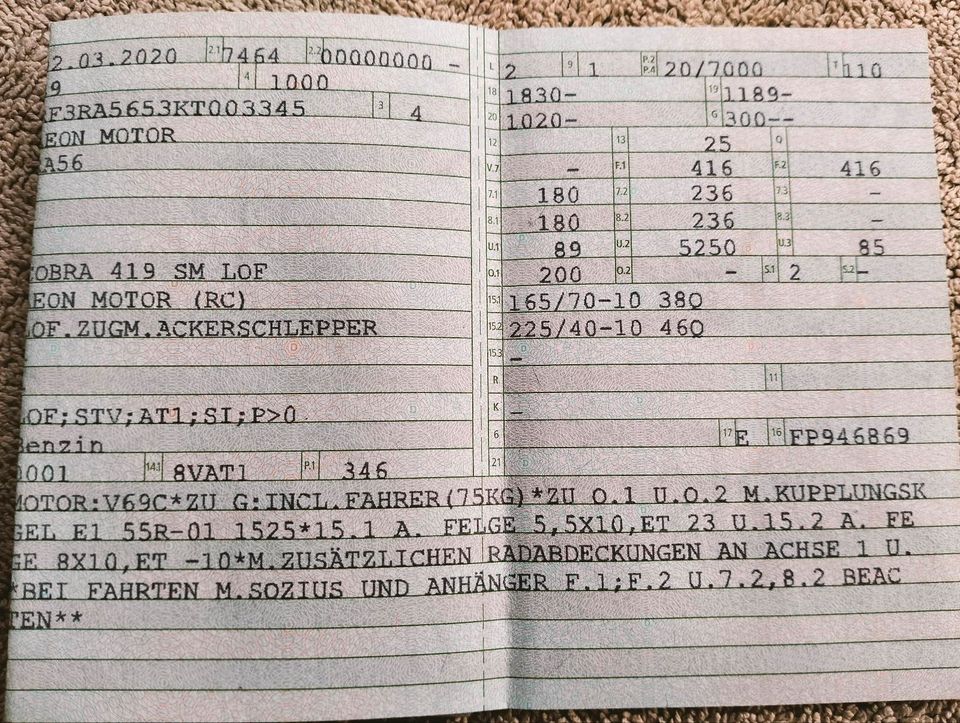 2.03.2020 2.1 7464 2.2 00000000 -
9 4 1000
F3RA5653KT003345 3 4
EON MOTOR
A56
OBRA 419 SM LOF
EON MOTOR (RC)
OF.ZUGM.ACKERSCHLEPPER
OF;STV;AT1;SI;P>0
Benzin
0001 14.1 8VAT1 P.1 346
L 2 9 1 P.2 P.4 20/7000 T 110
18 1830- 19 1189-
20 1020- G 300--
12 13 25 Q
V.7 - F.1 416 F.2 416
7.1 180 7.2 236 7.3 -
8.1 180 8.2 236 8.3 -
U.1 89 U.2 5250 U.3 85
O.1 200 O.2 - S.1 2 S.2 -
15.1 165/70-10 38Q
15.2 225/40-10 46Q
15.3 -
R 11
K -
6 17 E 16 FP946869
21
MOTOR:V69C*ZU G:INCL.FAHRER(75KG)*ZU O.1 U.O.2 M.KUPPLUNGSK
GEL E1 55R-01 1525*15.1 A. FELGE 5,5X10,ET 23 U.15.2 A. FE
GE 8X10,ET -10*M.ZUSÄTZLICHEN RADABDECKUNGEN AN ACHSE 1 U.
*BEI FAHRTEN M.SOZIUS UND ANHÄNGER F.1;F.2 U.7.2,8.2 BEAC
TEN**